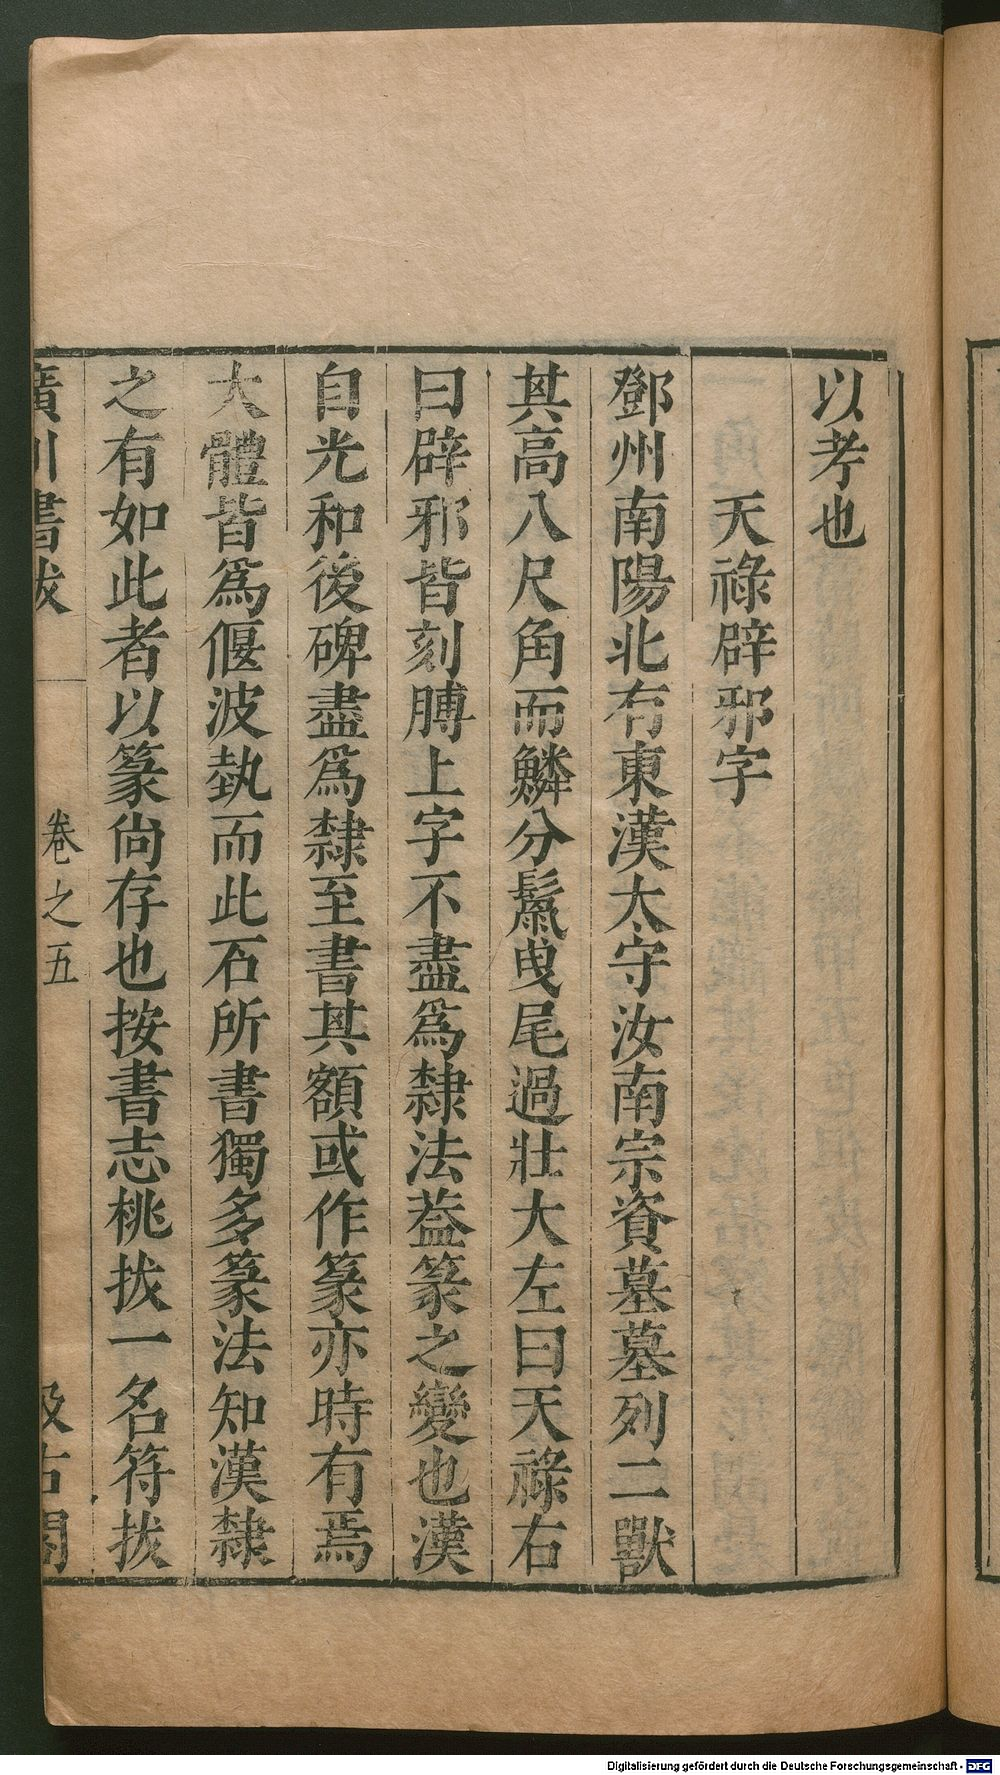 以考也
天祿辟邪字
鄧州南陽北有東漢太守汝南宗資墓墓列二獸
其高八尺角而鱗分鬣曳尾過壯大左曰天祿右
曰辟邪皆刻膊上字不盡爲隸法葢篆之變也漢
自光和後碑盡爲隸至書其額或作篆亦時有焉
大體皆爲偃波埶而此石所書獨多篆法知漢隸
之有如此者以篆尙存也按書志桃拔一名符拔
廣川書跋
卷之五
汲古閣
Digitalisierung gefördert durch die Deutsche Forschungsgemeinschaft - DFG